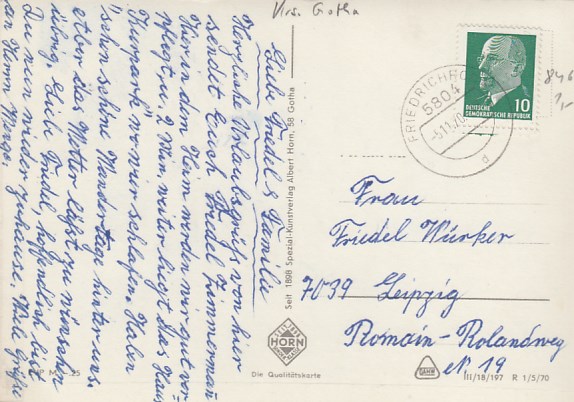 Krs. Gotha
Liebe Friedel & Familie
Herzliche Urlaubsgrüße von hier
sendet Euch Friedel Zimmermann
Hier in dem Heim werden wir gut ver-
pflegt u. 2 Min. weiter liegt das Haus
"Kurpark" wo wir schlafen. Haben
schon schöne Wandertage hinter uns.
aber das Wetter läßt zu wünschen
übrig. Liebe Friedel, hoffentlich bist
Du nun wieder zuhause. Viele Grüße
an Herrn
Seit 1898 Spezial-Kunstverlag Albert Horn, 58 Gotha
HORN
Die Qualitätskarte
FRIEDRICHRO
5804
-5.11.70
d
DEUTSCHE
DEMOKRATISCHE REPUBLIK
10
846
1,-
Frau
Friedel Würker
7039 Leipzig
Romain-Rolandweg
N 19
III/18/197 R 1/5/70